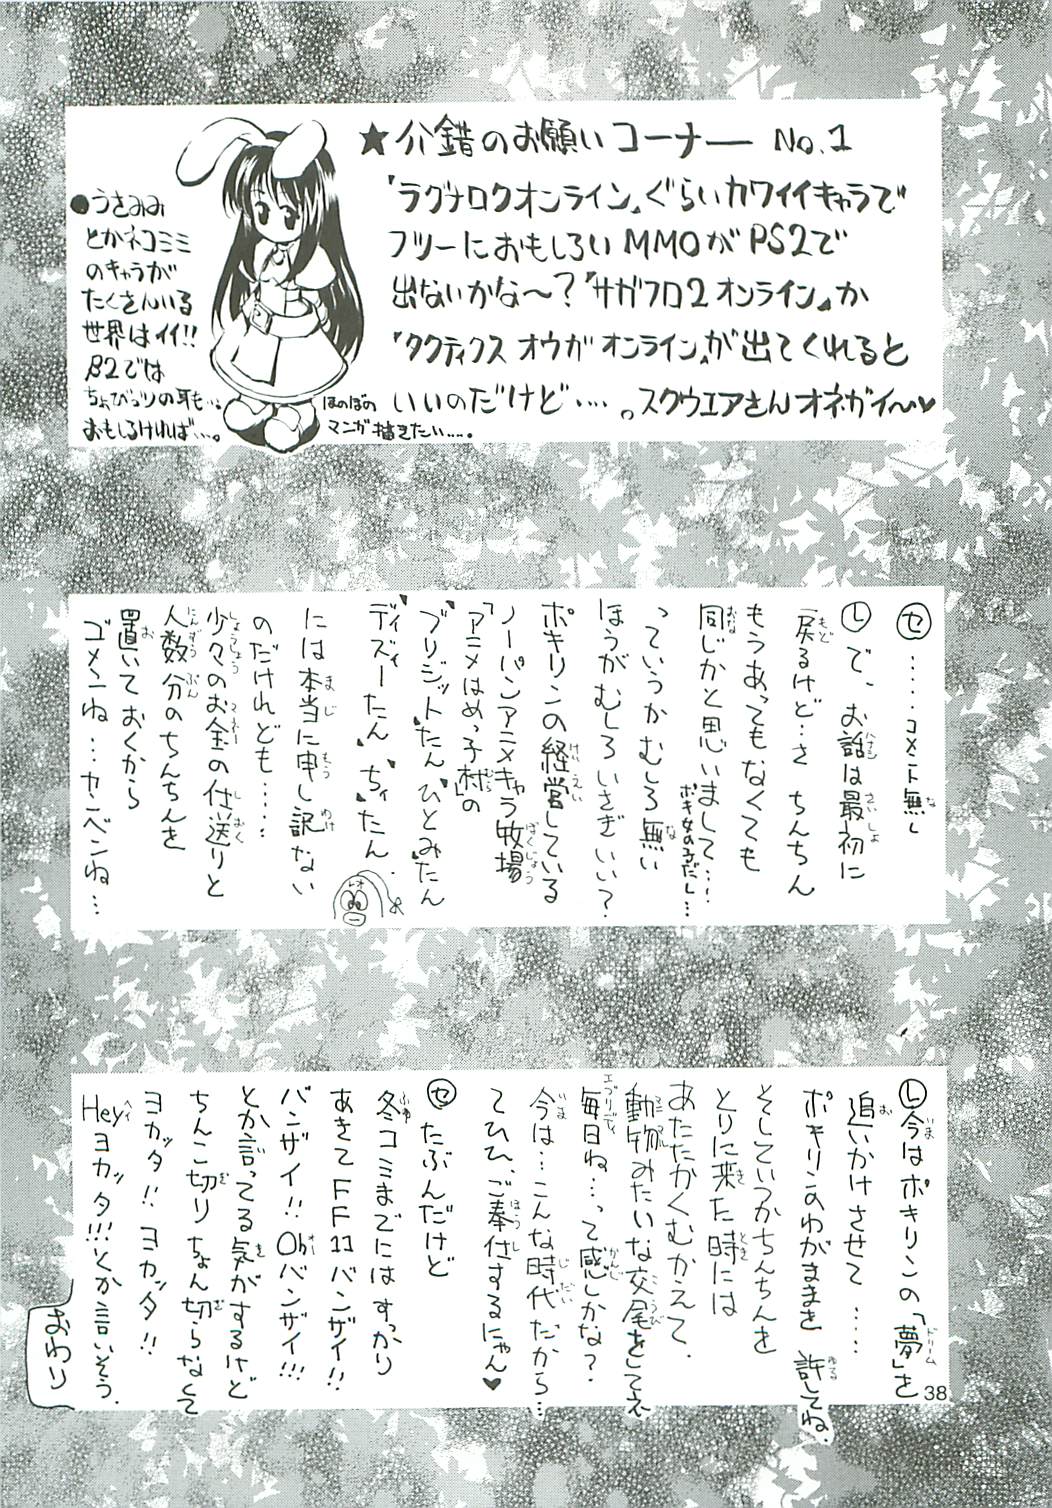 ★介錯のお願いコーナー No.1
『ラグナロクオンライン』ぐらいカワイイキャラで
フツーにおもしろいMMOがPS2で
出ないかな〜?『サガフロ2オンライン』か
『タクティクス オウガ オンライン』が出てくれると
いいのだけど‥‥。スクウエアさんオネガイ〜♥
●うさみみ
とかネコミミ
のキャラが
たくさんいる
世界はイイ!!
β2では
ちょびっツの耳も…。
おもしろければ…。
ほのぼの
マンガ描きたい‥‥。
セ ‥‥コメント無し
レ で、お話は最初に
戻るけど…さ ちんちん
もうあってもなくても
同じかと思いまして‥‥
ポキ女の子だし…
っていうかむしろ無い
ほうがむしろいさぎいい?
ポキリンの経営している
ノーパンアニメキャラ牧場
「アニメはめっ子村」の
"ブリジット"たん"ひとみ"たん
"ディズィー"たん、"ちぃ"たん
には本当に申し訳ない
のだけれども‥‥‥
少々のお金の仕送りと
人数分のちんちんを
置いておくから
ゴメンね…カンベンね…
レオ
レ 今はポキリンの「夢」を
追いかけさせて‥‥‥
ポキリンのわがままを 許してね.
そしていつかちんちんを
とりに来た時には
あたたかくむかえて、
動物みたいな交尾をしてえ
毎日ね…って感じかな?
今は…こんな時代だから…
てひひ、ご奉仕するにゃん♥
セ たぶんだけど
冬コミまでにはすっかり
あきてFF11バンザイ!!
バンザイ!!Ohバンザイ!!!
とか言ってる気がするけど
ちんこ切りちょん切らなくて
ヨカッタ!!ヨカッタ!!
Heyヨカッタ!!!とか言いそう.
おわり
38